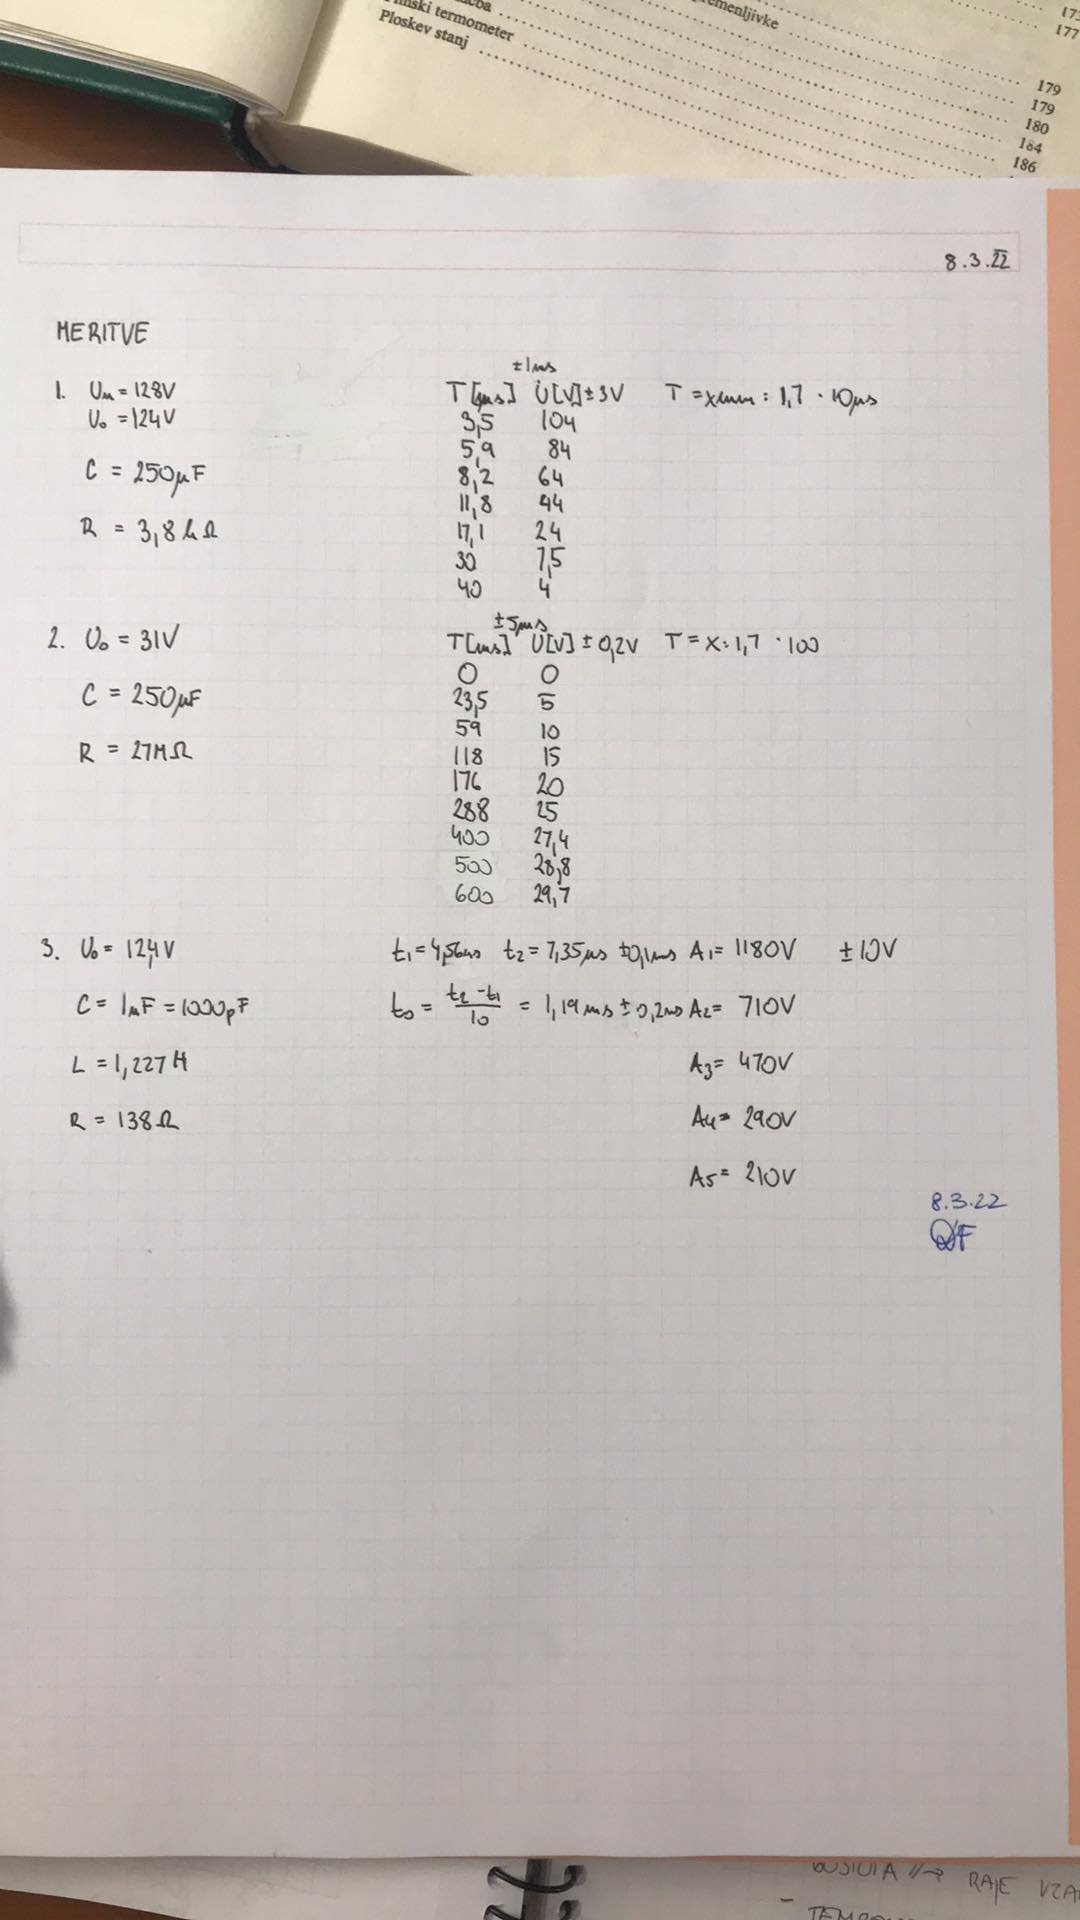 premenljivke
177
Plinski termometer
Ploskev stanj
179
179
180
184
186
8.3.22
MERITVE
±1ms
1. Um = 128V
U₀ = 124V
C = 250μF
R = 3,8kΩ
T[ms] U[V]±3V T = xmm : 1,7 · 10μs
3,5 104
5,9 84
8,2 64
11,8 44
17,1 24
30 7,5
40 4
±5ms
2. U₀ = 31V
C = 250μF
R = 27MΩ
T[ms] U[V] ± 0,2V T = x : 1,7 · 100
0 0
23,5 5
59 10
118 15
176 20
288 25
400 27,4
500 28,8
600 29,7
3. U₀ = 12,4V
C = 1nF = 1000pF
L = 1,227H
R = 138Ω
t₁ = 4,56ms t₂ = 7,35ms ±0,1ms A₁ = 1180V ±10V
t₀ = (t₂ - t₁)/10 = 1,19ms ± 0,2ms A₂ = 710V
A₃ = 470V
A₄ = 290V
A₅ = 210V
8.3.22
RAJE